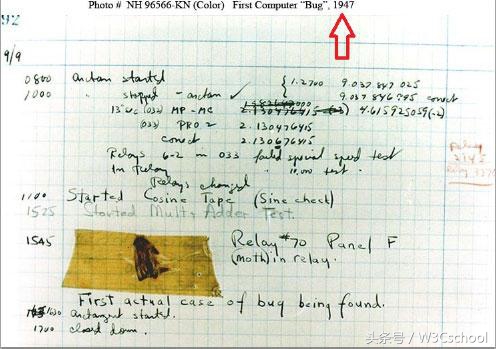 Photo # NH 96566-KN (Color) First Computer "Bug", 1947
92
9/9
0800 antan started
1000 " stopped - antan ✓ { 1.2700 9.037 847 025
9.037 846 995 conect
13"uc (032) MP - MC 2.130476415 4.615925059(-2)
(033) PRO 2 2.130476415
conect 2.130676415
Relays 6-2 in 033 failed special speed test
In Relay " 10,000 test.
Relay
2145
Relay 3370
Relays changed
1100 Started Cosine Tape (Sine check)
1525 Started Mult+Adder Test.
1545 Relay #70 Panel F
(moth) in relay.
First actual case of bug being found.
1630 antangent started.
1700 closed down.
头条号 / W3Cschool